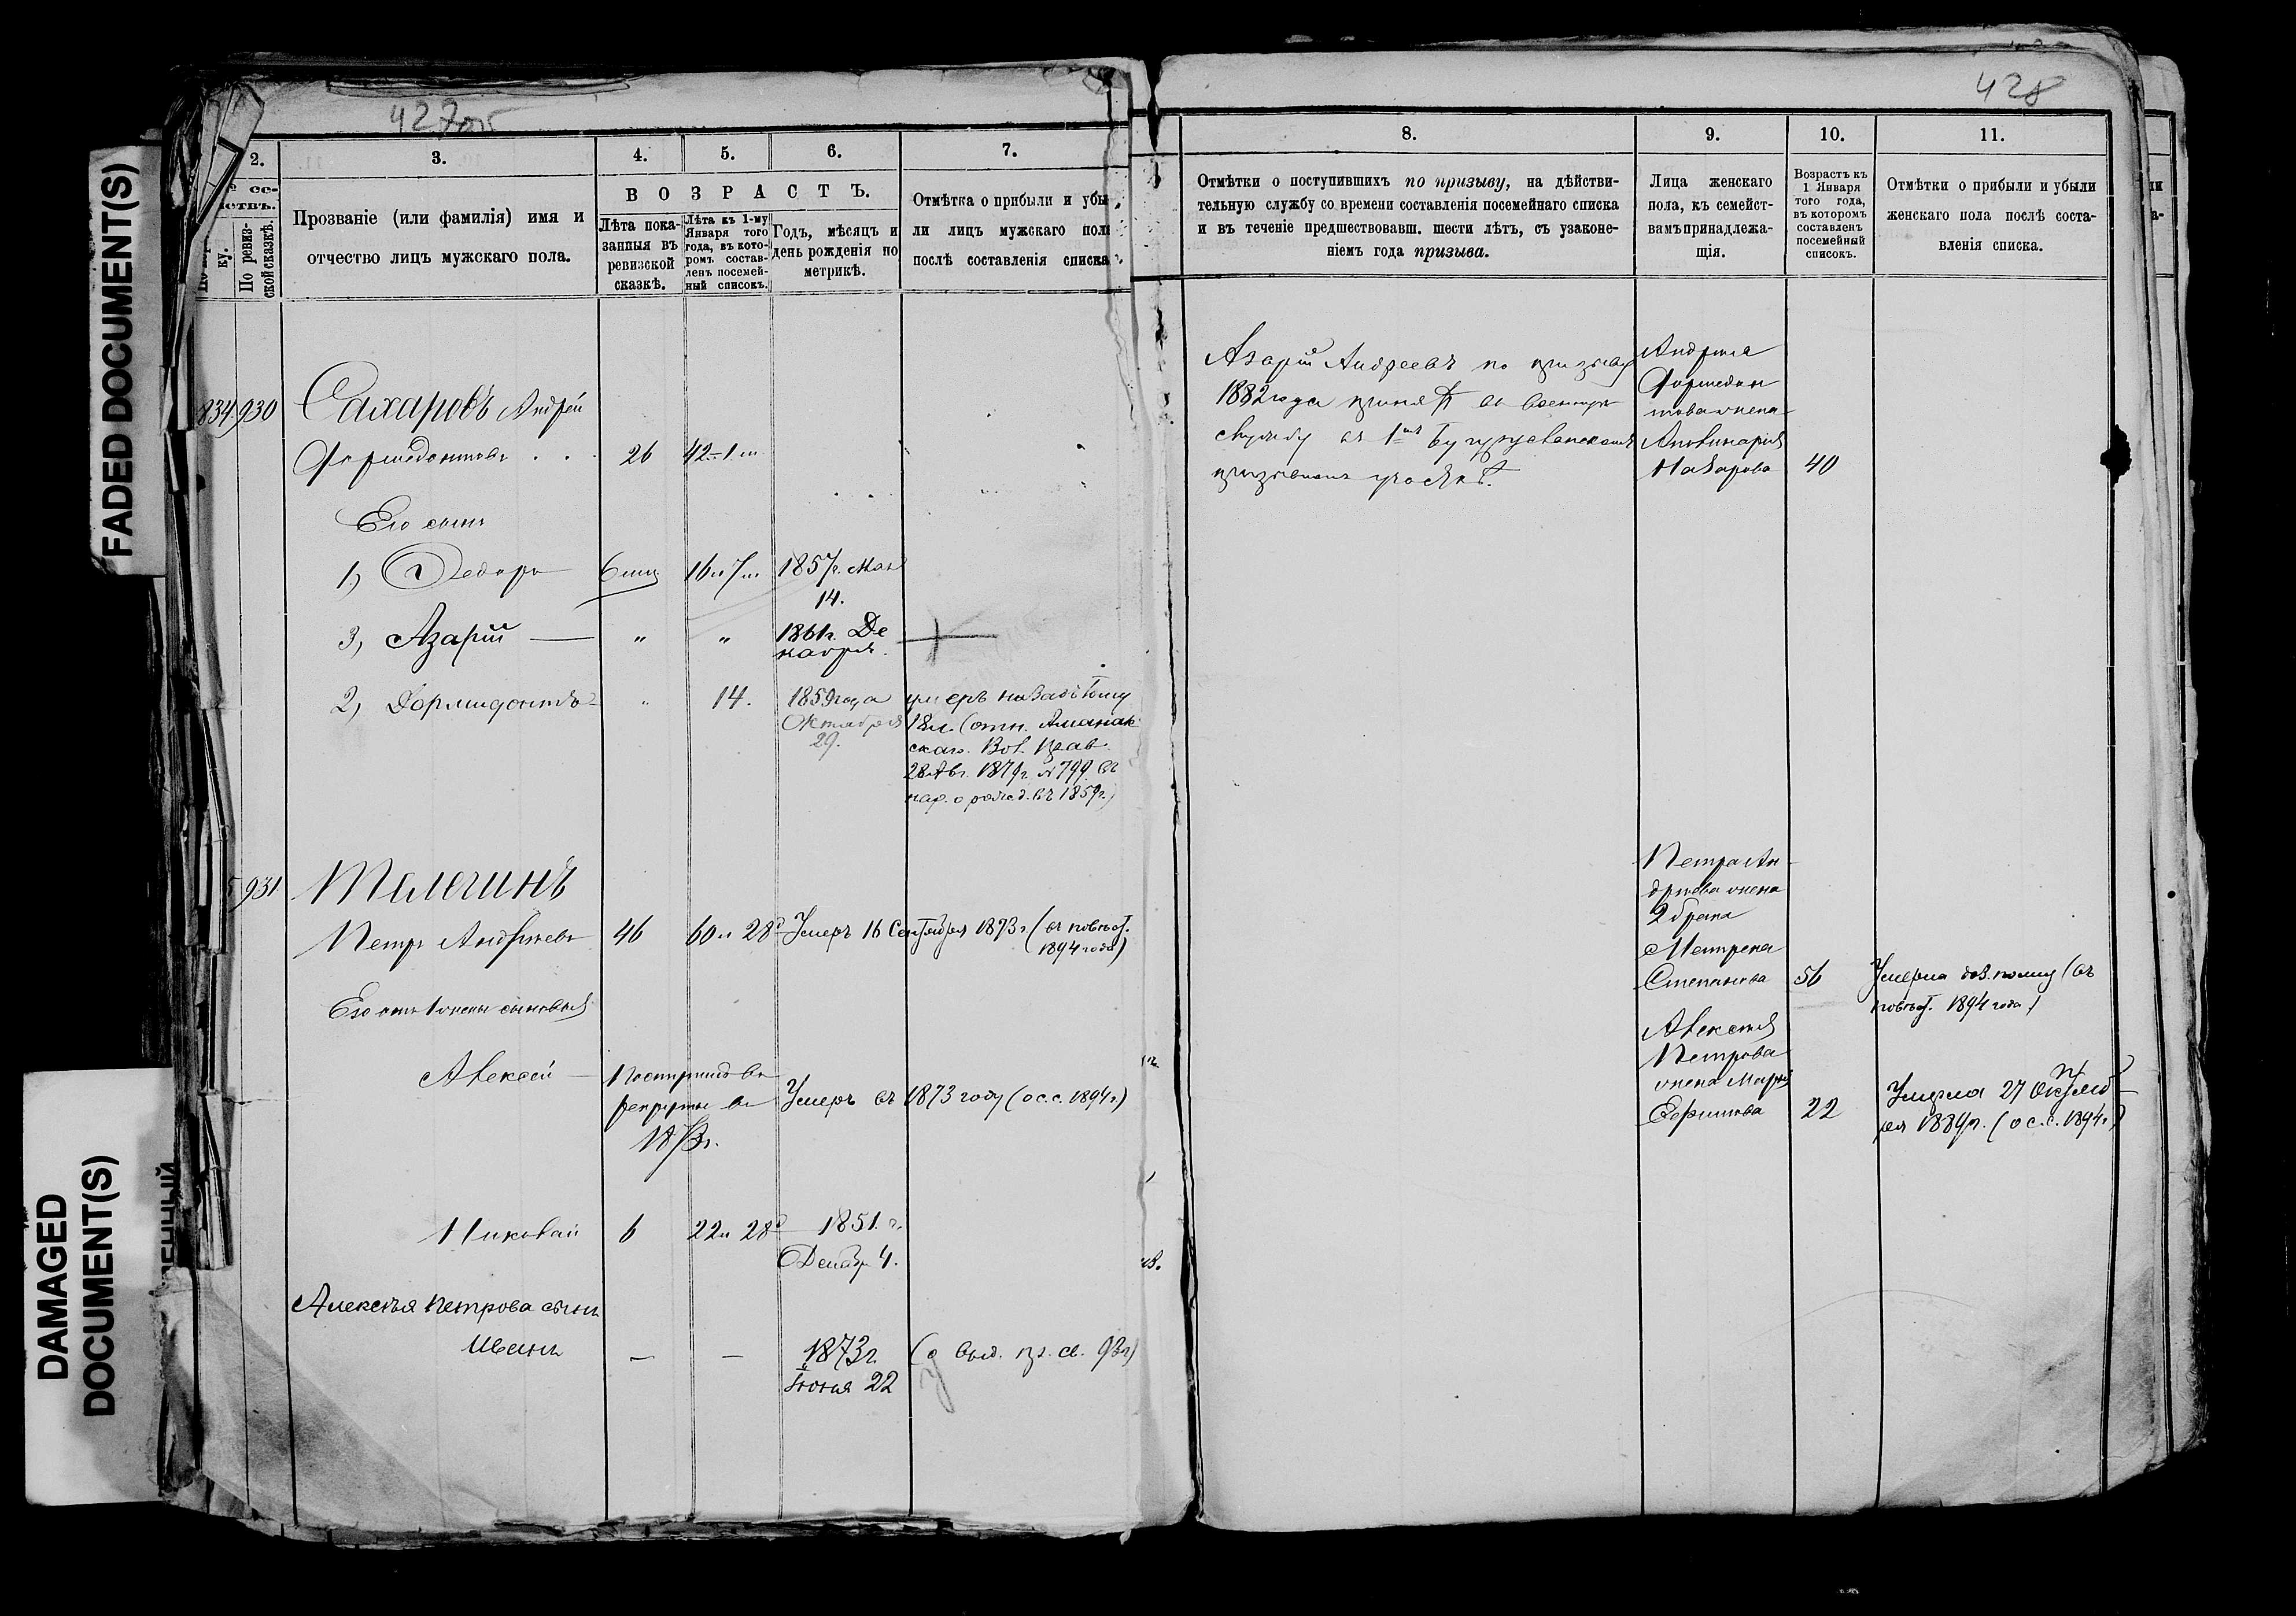 FADED DOCUMENT(S)
DAMAGED
DOCUMENT(S)
427об
2.
3.
4.
5.
6.
7.
Прозваніе (или фамилія) имя и
отчество лицъ мужскаго пола.
По ревиз-
ской сказкѣ.
ВОЗРАСТЪ.
Лѣта пока-
занныя въ
ревизской
сказкѣ.
Лѣта къ 1-му
Января того
года, въ кото-
ромъ состав-
ленъ посемей-
ный списокъ.
Годъ, мѣсяцъ и
день рожденія по
метрикѣ.
Отмѣтка о прибыли и убы
ли лицъ мужскаго пол
послѣ составленія списка
834 930 Сахаровъ Андрей
Формидонтовъ . . 26 42 - 1 м
Его сынъ
1, Федоръ 6 м 16 л 7 м 1857 г. Мая
14.
3, Азарій — " " 1861 г. Де
кабря.
2, Формидонтъ " 14. 1859 года умеръ назадъ тому
Октября 18 л. (отн. Аманак
29. скаго Вол. Прав.
28 Авг. 1879 г. № 799. въ
нар. о рожд. въ 1859 г.)
931 Телегинъ
Петръ Андреевъ 46 60 л 28 д Умеръ 16 Сентября 1873 г (въ
1894 года)
Его отъ 1 жены сыновья
Алексей — Поступилъ въ
рекруты въ Умеръ въ 1873 году (о с.с. 1894 г.)
Николай 6 22 л 28 д 1851 г.
Декабр 4.
Алексѣя Петрова сынъ
Иванъ — — 1873 г. (о выд. пр. св. 93 г)
Іюня 22
428
8.
9.
10.
11.
Отмѣтки о поступившихъ по призыву, на дѣйстви-
тельную службу со времени составленія посемейнаго списка
и въ теченіе предшествовавш. шести лѣтъ, съ узаконе-
ніемъ года призыва.
Лица женскаго
пола, къ семейст-
вамъ принадлежа-
щія.
Возрастъ къ
1 Января
того года,
въ которомъ
составленъ
посемейный
списокъ.
Отмѣтки о прибыли и убыли
женскаго пола послѣ соста-
вленія списка.
Азарій Андреевъ по призыву
1882 года принятъ въ военную
службу въ 1мъ Бугурусланскомъ
призывномъ участкѣ.
Андрея
Формидон
това жена
Аполинарія
Назарова 40
Петра Ан-
дреева жена
2 брака
Матрена
Степанова 56 Умерла (въ
1894 года)
Алексея
Петрова
жена Марья
Ефимова 22 Умерла 27 Октяб
ря 1889 г. (о с.с. 1894 г)